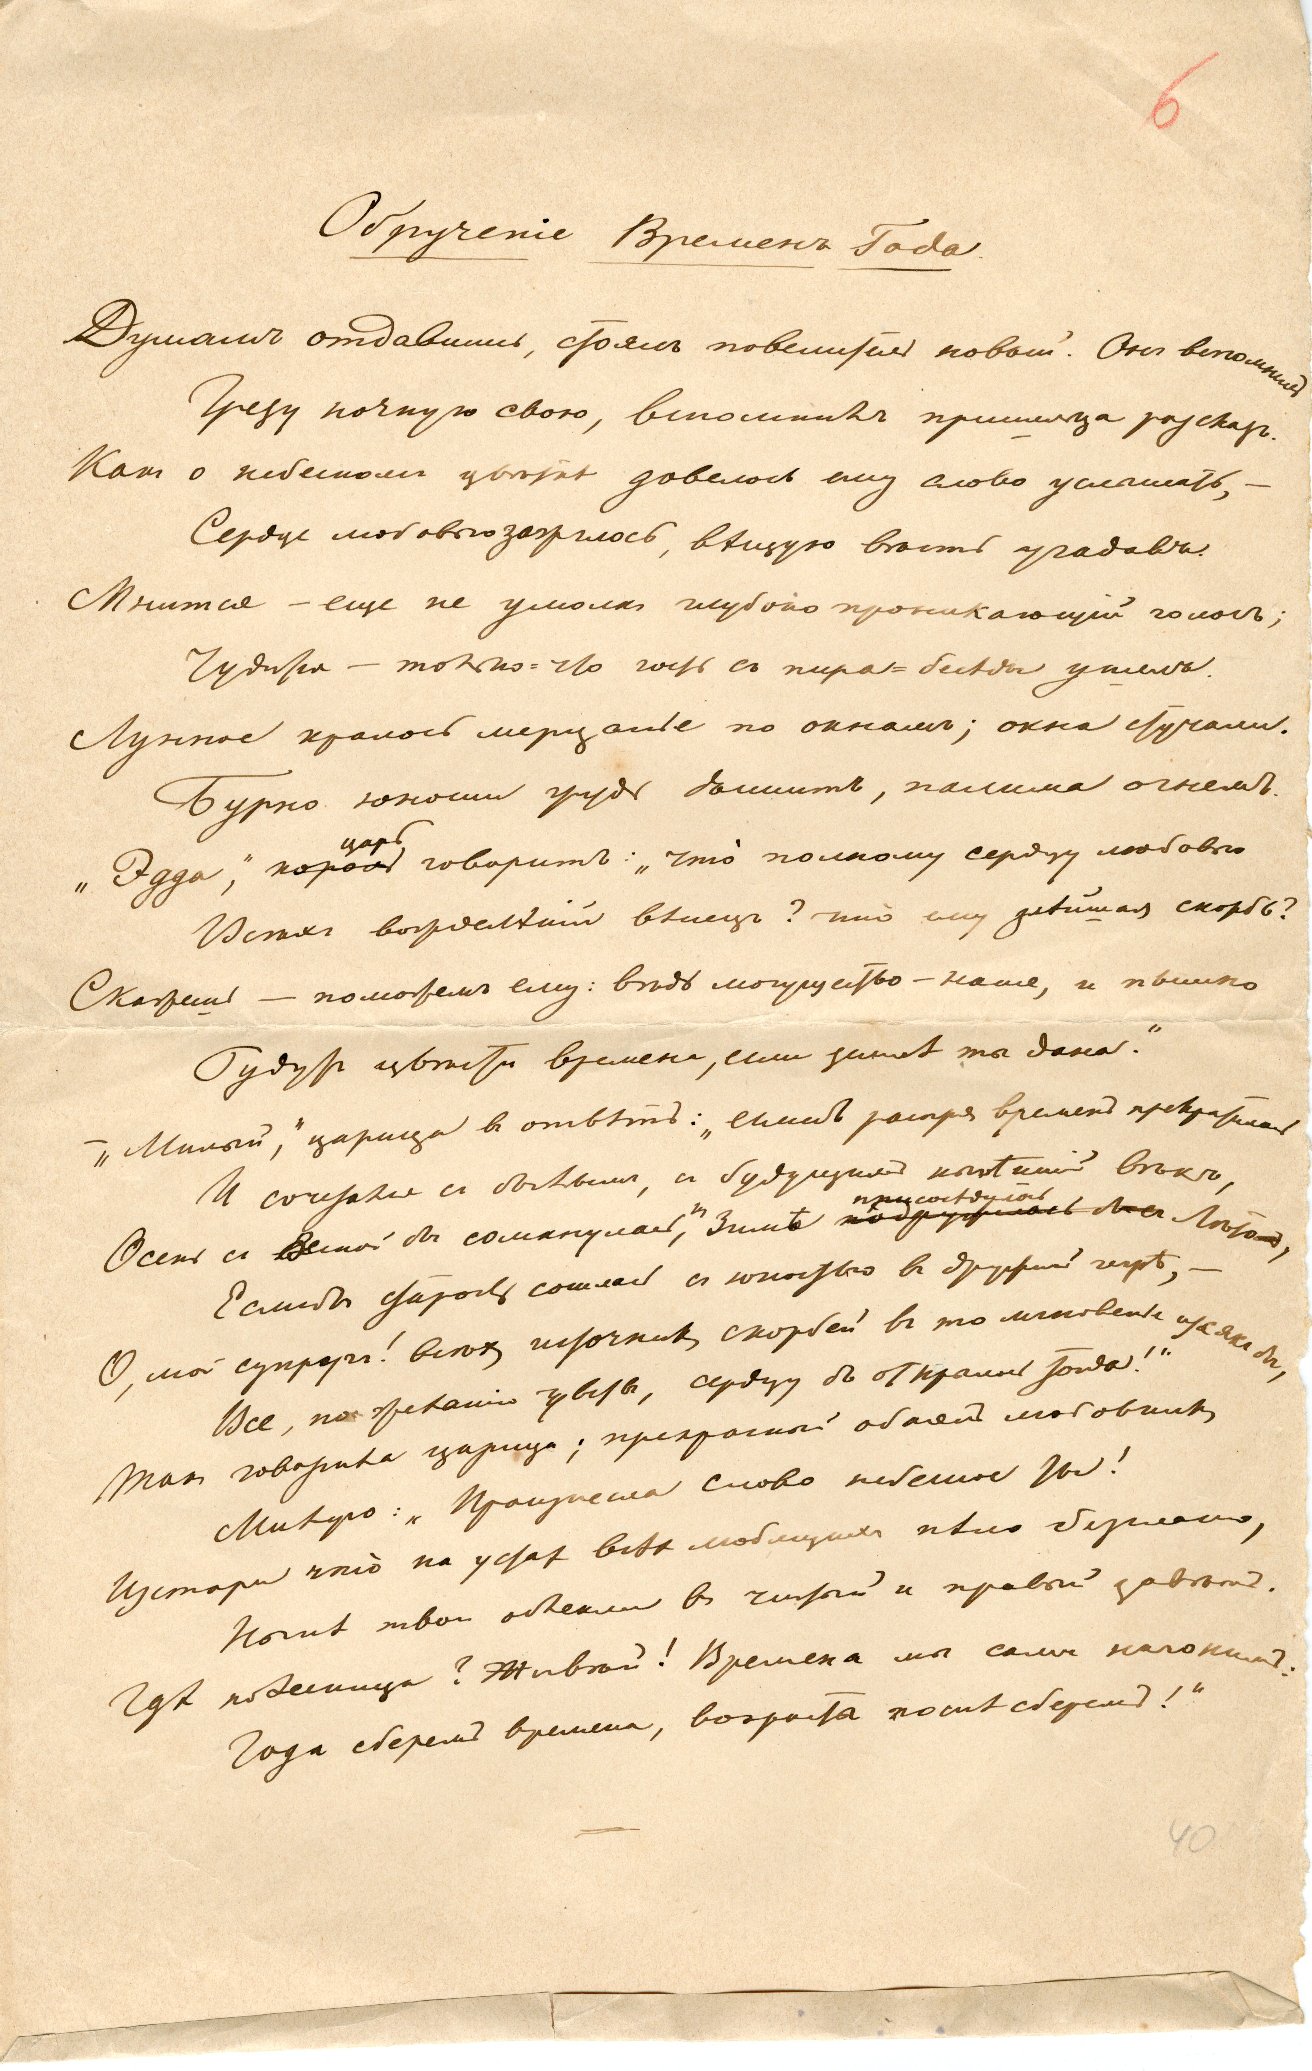 6
Обрученіе Временъ Года.
Думамъ отдавшись, стоялъ повелитель новый. Онъ вспомнилъ
Грезу ночную свою, вспомнилъ пришельца разсказъ.
Какъ о небесномъ цвѣткѣ довелось ему слово услышать, —
Сердце любовью зажглось, вѣщую вѣсть угадавъ.
Мнится — еще не умолкъ глубоко проникающій голосъ;
Чудится — только-что гость съ пира-бесѣды ушелъ.
Лунное кралось мерцанье по окнамъ; окна стучали.
Бурно юноши грудь дышитъ, палима огнемъ.
„Эдда", король царь говоритъ: „что полному сердцу любовью
Всѣхъ вожделѣній вѣнецъ? что ему злѣйшая скорбь?
Скажешь — поможемъ ему: вѣдь могущество – наше, и пышно
Будутъ цвѣсти времена, если землѣ ты дана."
— „Милый", царица въ отвѣтъ: „если бъ распря временъ прекратилась
И сочетался съ былымъ, съ будущимъ нынѣшній вѣкъ,
Осень съ Весной бы сомкнулась, Зимѣ подружилось бы съ присосѣдилось Лѣто,
Если бы старость сошлась съ юностью въ дружной игрѣ, —
О, мой супругъ! всѣхъ источникъ скорбей въ то мгновенье изсякъ бы,
Все, по желанію чувствъ, сердцу бъ открылось тогда!"
Такъ говорила царица; прекрасный обнялъ любовникъ
Милую: „Произнесла слово небесное ты!
Издавна что на устахъ всѣхъ любящихъ пѣло безгласно,
Нынѣ твои облекли въ чистый и правый завѣтъ.
Гдѣ колесница? Живѣй! Времена мы сами нагонимъ:
Года сберемъ времена, возраста послѣ сберемъ!"
40